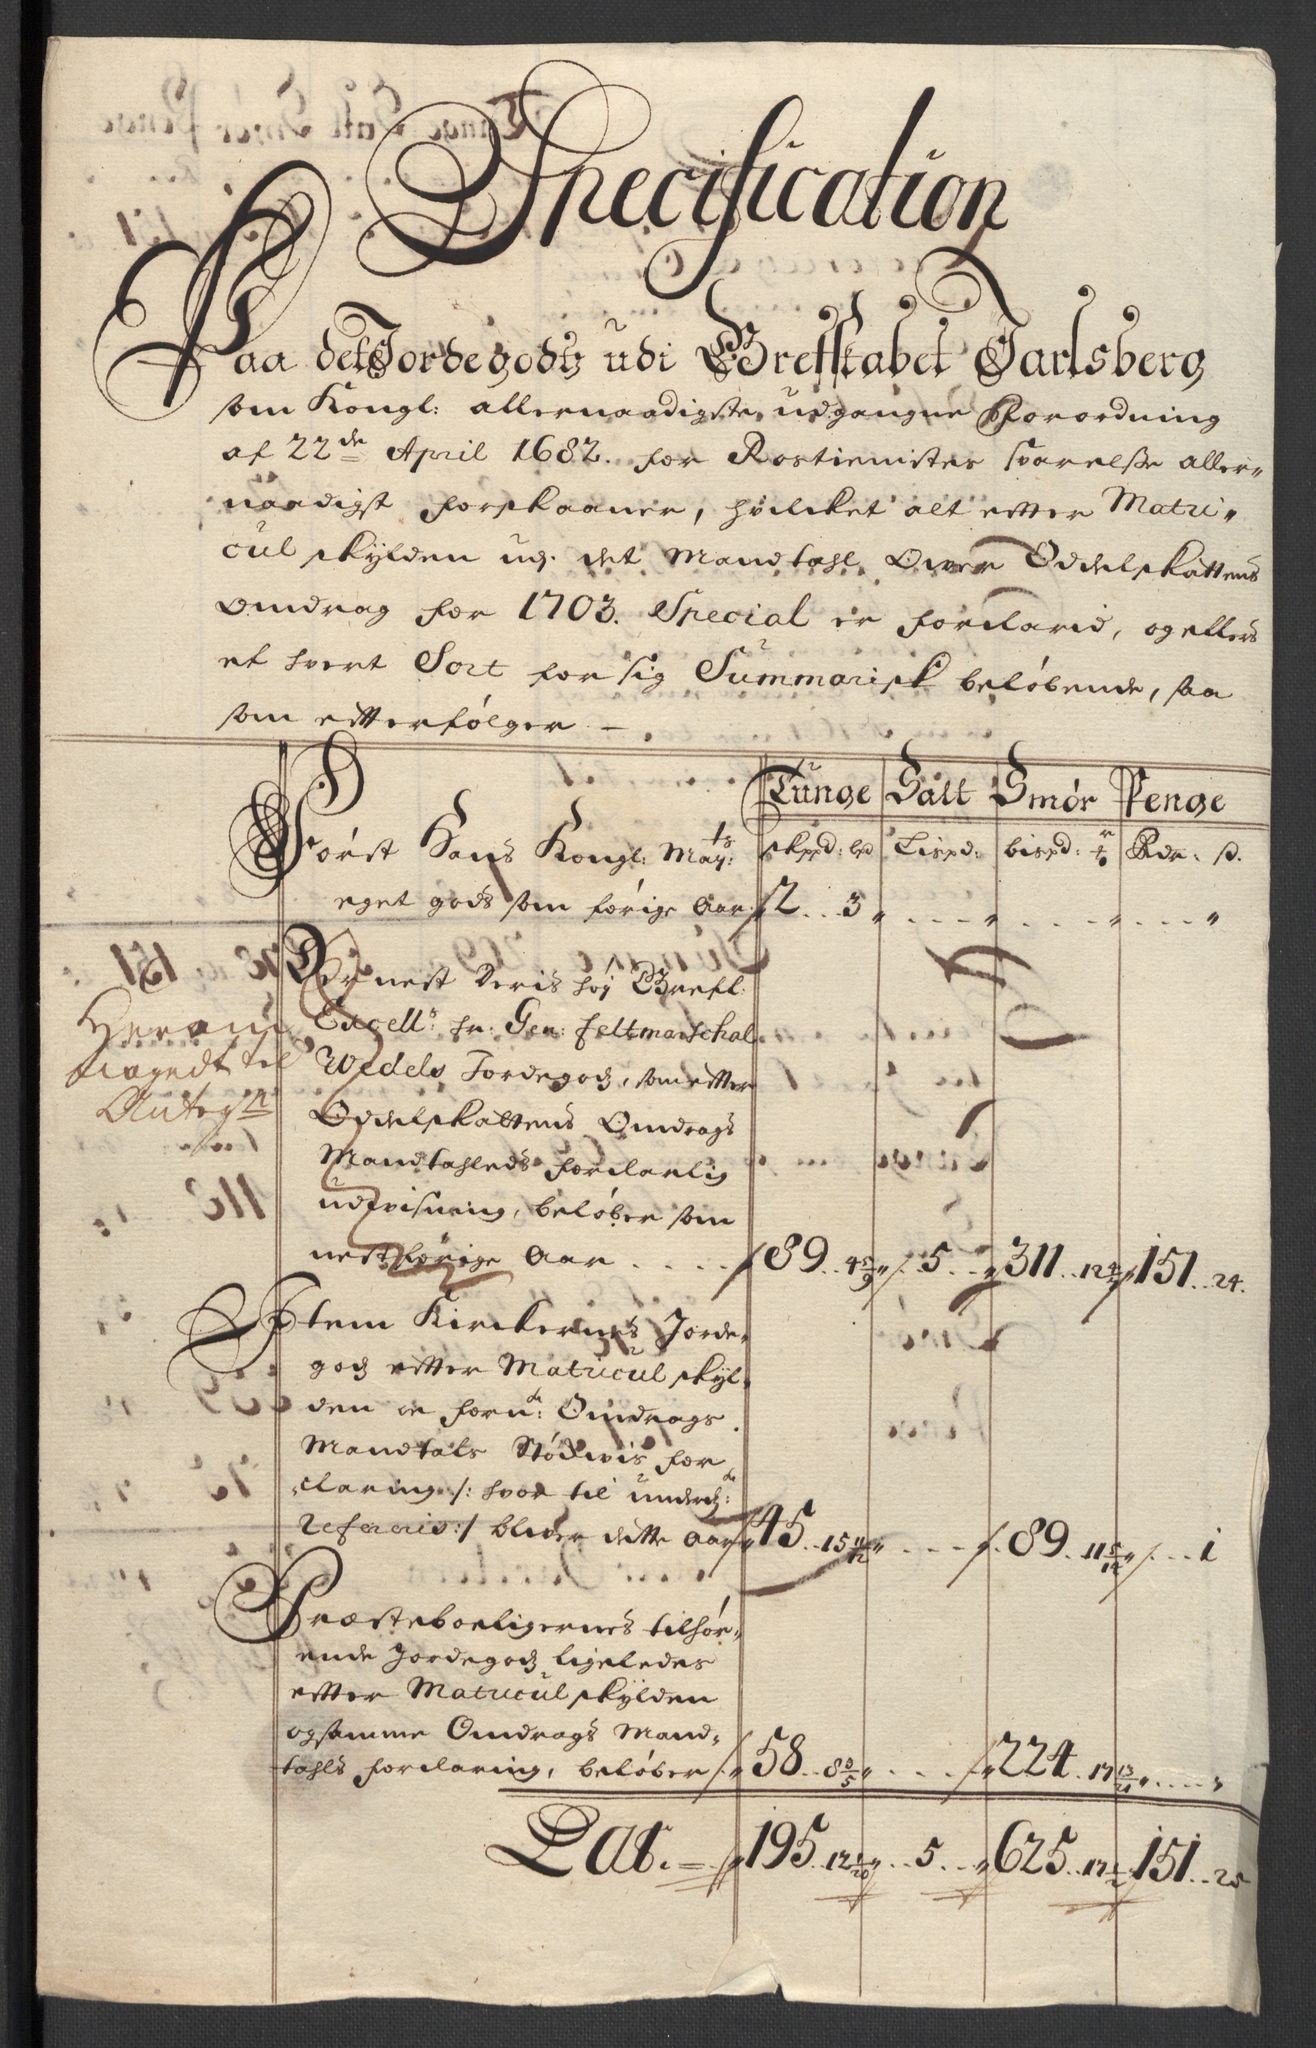 Specification
Paa det Jordegods udi Grefskabet Jarlsberg
som Kongl: allernaadigste udgangne Forordning
af 22de April 1682. for Rostienistes svarelsse aller-
naadigst forskaaner, hvilcket alt efter Matri-
cul skylden udj det Mandtahl Over Oddelskattens
Omdrag for 1703. Special er forclarid, og ellers
et hvert Sort for sig Summarisk beløbende, saa
som efterfølger –
Tunge Salt Smør Penge
skppd: lpd Lispd: bispd: Rdr. s.
Først Hans Kongl: Mayts:
eget gods som førige Aar 2 . . 3
Der nest Deris høy Grefl:
Excell: hr: Gen: feltmarschal
Wedels Jordegods, som efter
Oddelskattens Omdrags
Mandtahleds forclarlig
udvisning, beløber som
nestførige Aar . . . . 89 . . 4 5/9 . . 5 . . 311 . . 12 151 . . 24.
Heromb
til
Antegn
Item Kirckernes Jorde-
gods efter Matricul skyl-
den er forn: Omdrags
Mandtals Stødvis for
claring /: hvor til underd:
refereris :/ bliver dette Aar 45 . . 15 11/12 . . . . 89 . 11 5/12 . . . 1
Præsteboeligernes tilhør-
ende Jordegods ligeledes
efter Matricul skylden
og samme Omdrags Mand-
tahls forclaring, beløber 58 . . 8 3/5 . . . . 224 . 17 . . . .
Lat. 195 . . 12 . . 5 . . 625 . . 17 1/2 151 . . 25